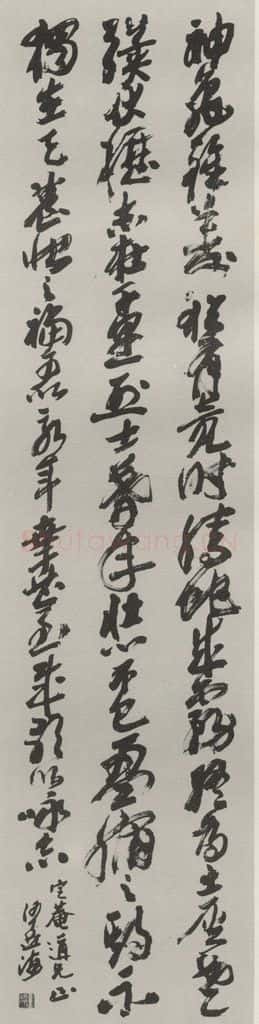 神龜雖壽猶有竟時騰蛇乘霧終為土灰老
驥伏櫪志在千里烈士暮年壯心不已盈縮之期不
獨在天養怡之福可以永年幸甚至哉歌以咏志
定菴道兄正
沙孟海